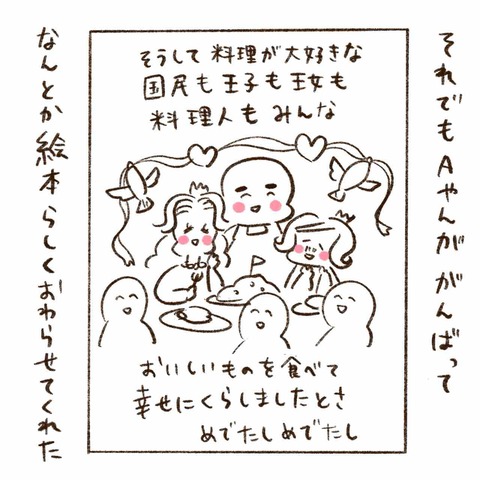 それでもAやんががんばって
そうして料理が大好きな
国民も王子も王女も
料理人もみんな
おいしいものを食べて
幸せにくらしましたとさ
めでたしめでたし
なんとか絵本らしくおわらせてくれた